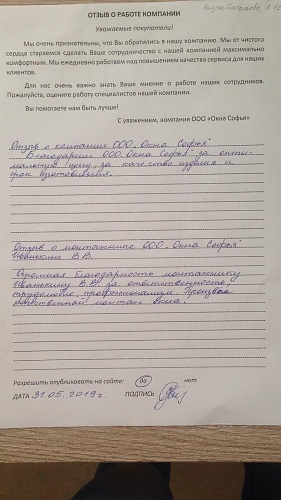 ОТЗЫВ О РАБОТЕ КОМПАНИИ
Уважаемые покупатели!
Мы очень признательны, что Вы обратились в нашу компанию. Мы от чистого
сердца стараемся сделать Ваше сотрудничество с нашей компанией максимально
комфортным. Мы ежедневно работаем над повышением качества сервиса для наших
клиентов.
Для нас очень важно знать Ваше мнение о работе наших сотрудников.
Пожалуйста, оцените работу специалистов нашей компании.
Вы помогаете нам быть лучше!
С уважением, компания ООО «Окна Софья»
Отзыв о компании ООО „Окна Софья"
Благодарим ООО „Окна Софья" за опти-
мальную цену, за качество изделия и
срок изготовления.
Отзыв о монтажнике ООО „Окна Софья"
В.В.
Огромная благодарность монтажнику
Иванькину В.В. за ответственность,
трудолюбие, профессионализм. Произвёл
качественный монтаж окна.
Разрешить опубликовать на сайте: да нет
ДАТА 31.05.2019г. ПОДПИСЬ